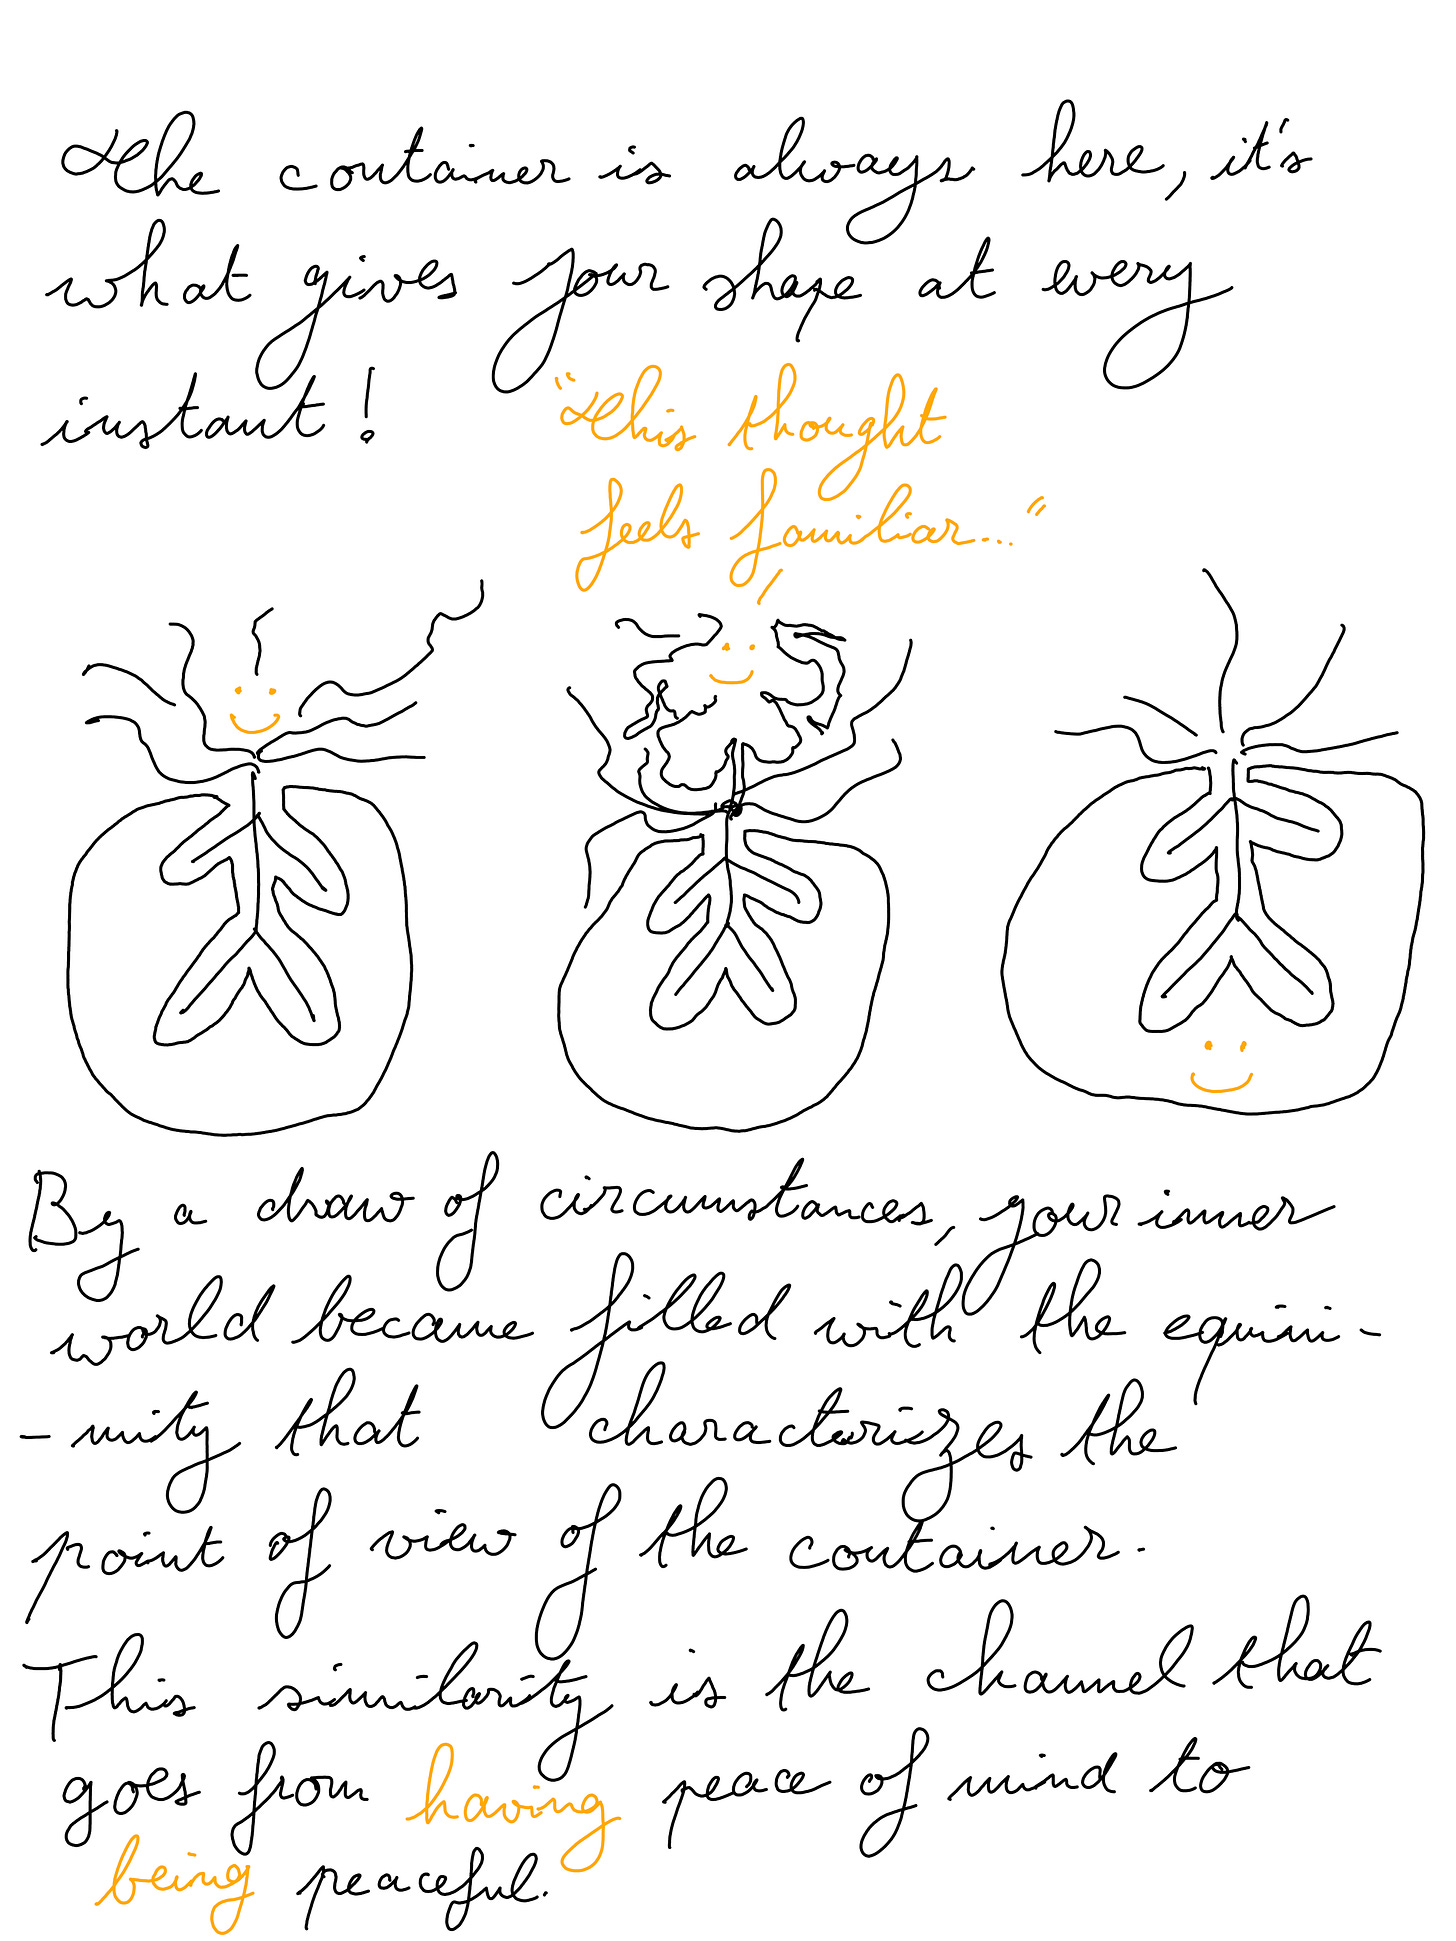 The container is always here, it's
what gives your shape at every
instant!
"This thought
feels familiar..."
By a draw of circumstances, your inner
world became filled with the equini-
-mity that characterizes the
point of view of the container.
This similarity is the channel that
goes from having peace of mind to
being peaceful.